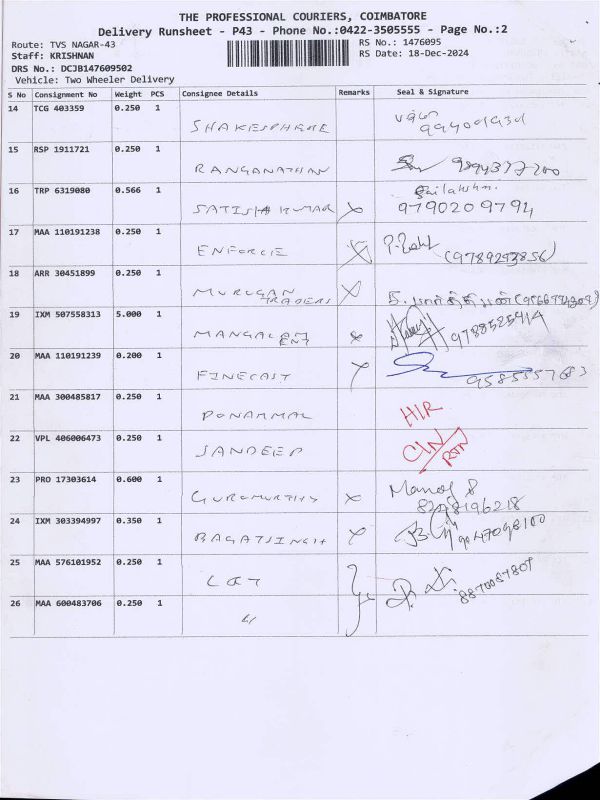 THE PROFESSIONAL COURIERS, COIMBATORE
Delivery Runsheet - P43 - Phone No.:0422-3505555 - Page No.:2
Route: TVS NAGAR-43
Staff: KRISHNAN
DRS No.: DCJB147609502
Vehicle: Two Wheeler Delivery
RS No.: 1476095
RS Date: 18-Dec-2024
S No Consignment No Weight PCS Consignee Details Remarks Seal & Signature
14 TCG 403359 0.250 1
SHAKESPHERE
15 RSP 1911721 0.250 1
RANGANATHAN
16 TRP 6319080 0.566 1
SATISH KUMAR x 9790209794
17 MAA 110191238 0.250 1
ENFORCE x (9789293856)
18 ARR 30451899 0.250 1
MURUGAN TRADERS x
19 IXM 507558313 5.000 1
MANGALAM ENT x 9788525414
20 MAA 110191239 0.200 1
FINECAST x 9585557683
21 MAA 300485817 0.250 1
PONAMMAL H/R
22 VPL 406006473 0.250 1
SANDEEP C/N/RTN
23 PRO 17303614 0.600 1
GURUMURTHY x Manoj S
8248196218
24 IXM 303394997 0.350 1
BAGATSINGH x
25 MAA 576101952 0.250 1
L&T
26 MAA 600483706 0.250 1
"